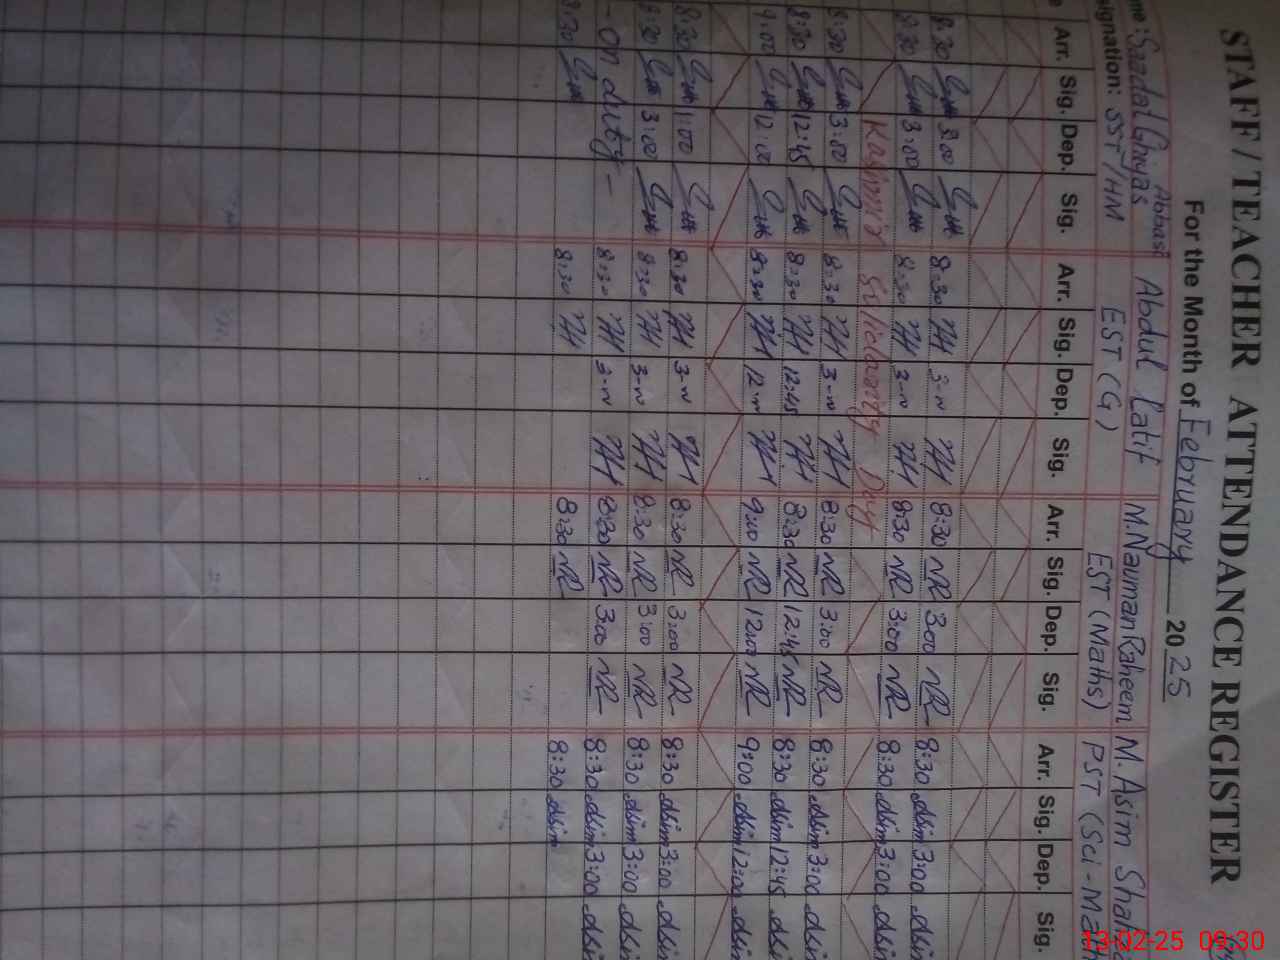 STAFF / TEACHER ATTENDANCE REGISTER
For the Month of February 2025
me: Saadat Ghiyas Abbasi Abdul Latif M. Nauman Raheem M. Asim
signation: SST/HM EST (G) EST (Maths) PST (Sci-Math
e Arr. Sig. Dep. Sig. Arr. Sig. Dep. Sig. Arr. Sig. Dep. Sig. Arr. Sig. Dep. Sig.
8:30 3:00 8:30 3-00 8:30 NR 3:00 NR 8:30 Asim 3:00 Asim
8:30 3:00 8:30 3-00 8:30 NR 3:00 NR 8:30 Asim 3:00 Asim
Kashmir Solidarity Day
8:30 3:00 8:30 3-00 8:30 NR 3:00 NR 8:30 Asim 3:00 Asim
8:30 12:45 8:30 12:45 8:30 NR 12:45 NR 8:30 Asim 12:45 Asi
9:00 12:00 8:30 12-00 9:00 NR 12:00 NR 9:00 Asim 12:00 Asi
8:30 1:00 8:30 3-00 8:30 NR 3:00 NR 8:30 Asim 3:00 Asi
8:30 3:00 8:30 3-00 8:30 NR 3:00 NR 8:30 Asim 3:00 Asi
- on duty - 8:30 3-00 8:30 NR 3:00 NR 8:30 Asim 3:00 Asi
8:30 8:30 8:30 NR 8:30 Asim
13-02-25 09:30